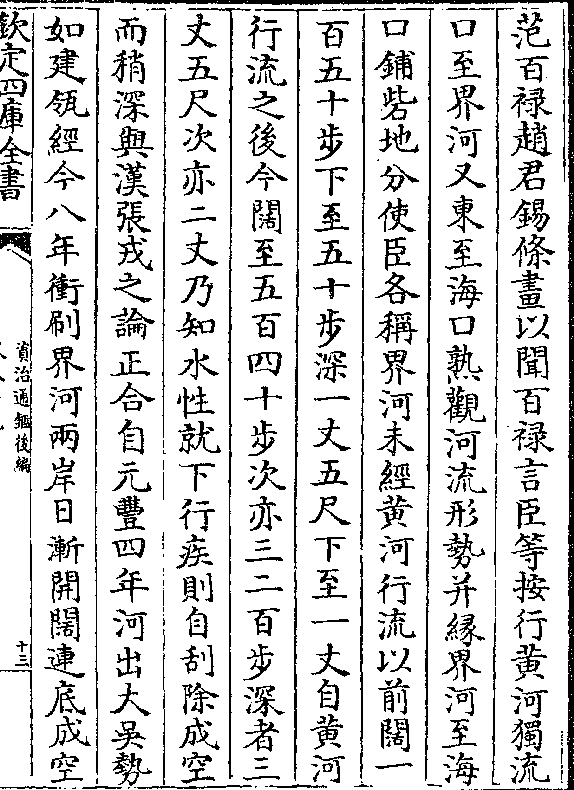 范百禄趙君錫條畫以聞百禄言臣等按行黄河獨流
口至界河又東至海口熟觀河流形勢并縁界河至海
口鋪砦地分使臣各稱界河未經黄河行流以前闊一
百五十步下至五十步深一丈五尺下至一丈自黄河
行流之後今闊至五百四十步次亦三二百步深者三
丈五尺次亦二丈乃知水性就下行疾則自刮除成空
而稍深與漢張戎之論正合自元豐四年河出大吳勢
如建瓴經今八年衝刷界河兩岸日漸開闊連底成空
欽定四庫全書
資治通鑑後編
十三